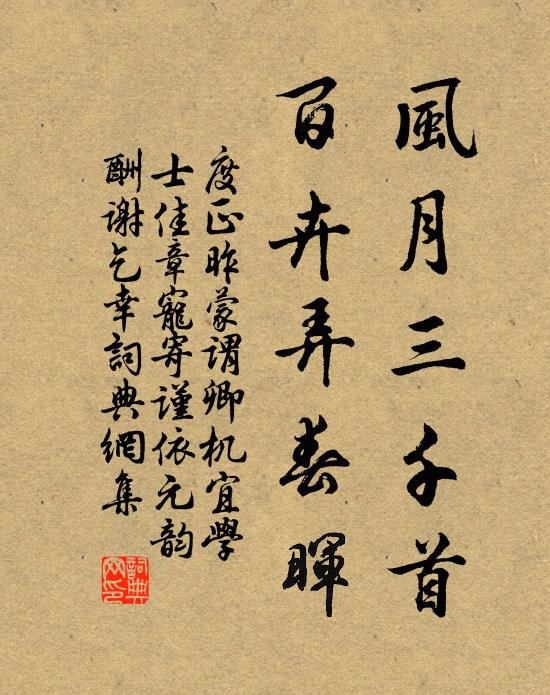 風月三千首
百卉弄春暉
度正昨蒙谓卿机宜學
士佳章寵寄謹依元韵
酬谢乞幸詞典網集
詞典網印